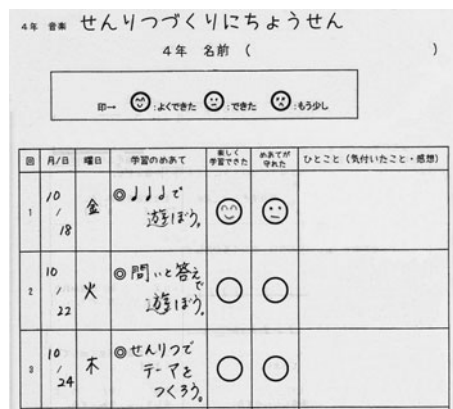 4年 音楽 せんりつづくりにちょうせん
4年 名前 ( )
印→ :よくできた :できた :もう少し
回 月/日 曜日 学習のめあて 楽しく学習できた めあてが守れた ひとこと(気付いたこと・感想)
1 10/18 金 ◎♩♩♩で
遊ぼう。
2 10/22 火 ◎問いと答えで
遊ぼう。
3 10/24 木 ◎せんりつで
テーマを
つくろう。